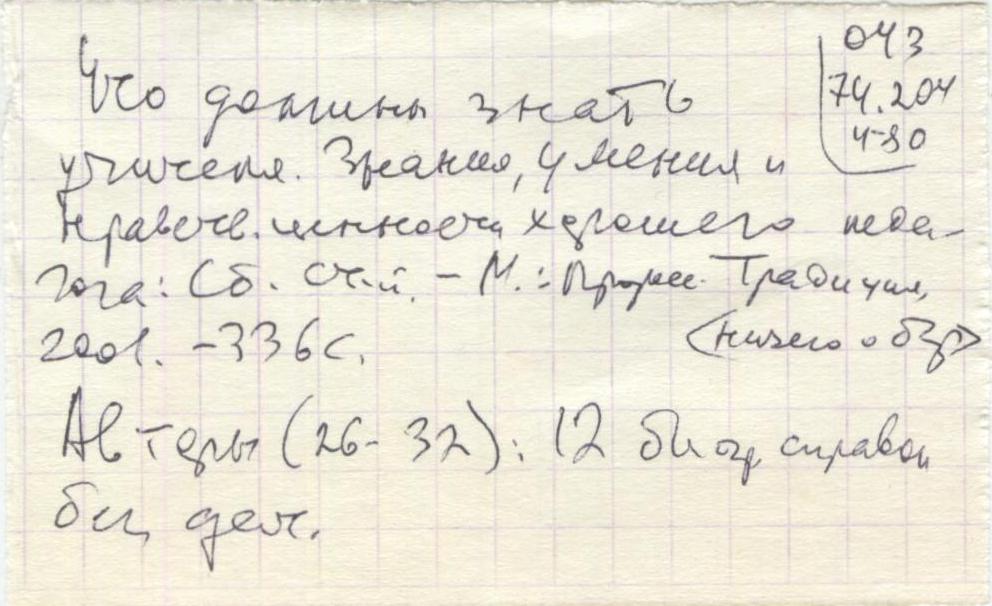 043
74.204
Ч-80
Что должны знать
учителя. Знания, умения и
нравств. ценности хорошего педа-
гога: Сб. ст. – М.: Прогресс-Традиция,
2001. – 336 с.
(ничего о бзр)
Авторы (26-32): 12 биогр. справок
без дат.